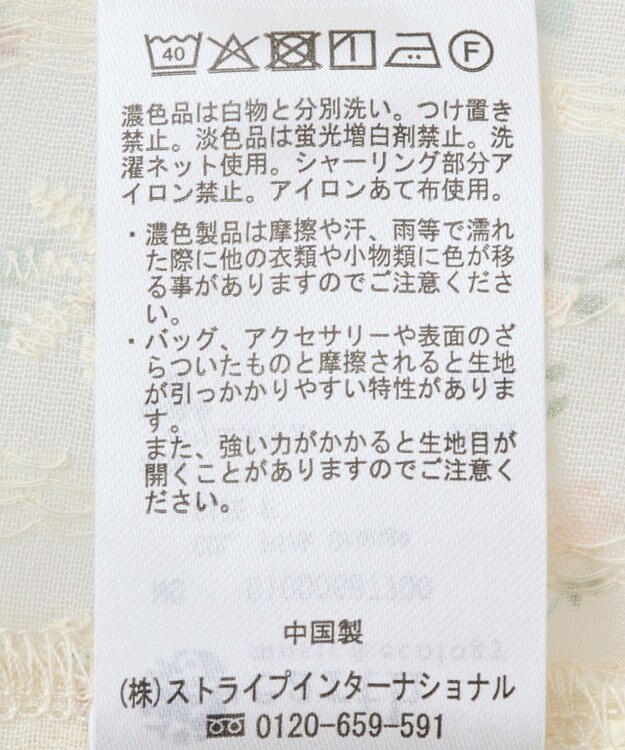 40 F
濃色品は白物と分別洗い。つけ置き
禁止。淡色品は蛍光増白剤禁止。洗
濯ネット使用。シャーリング部分ア
イロン禁止。アイロンあて布使用。
・濃色製品は摩擦や汗、雨等で濡れ
た際に他の衣類や小物類に色が移
る事がありますのでご注意くださ
い。
・バッグ、アクセサリーや表面のざ
らついたものと摩擦されると生地
が引っかかりやすい特性がありま
す。
また、強い力がかかると生地目が
開くことがありますのでご注意く
ださい。
中国製
(株)ストライプインターナショナル
0120-659-591